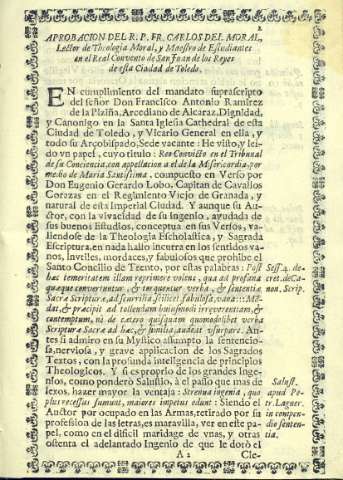 APROBACION DEL R. P. FR. CARLOS DEL MORAL,
Lector de Theologia Moral, y Maestro de Estudiantes
en el Real Convento de San Juan de los Reyes
de esta Ciudad de Toledo.
EN cumplimiento del mandato suprascripto
del señor Don Francisco Antonio Ramirez
de la Piszina, Arcediano de Alcaraz, Dignidad,
y Canonigo en la Santa Iglesia Cathedral de esta
Ciudad de Toledo, y Vicario General en ella, y
todo su Arçobispado, Sede vacante: He visto, y lei-
do vn papel, cuyo titulo: Reo Convicto en el Tribunal
de su Conciencia, con apelacion al de la Misericordia, por
medio de Maria Santissima, compuesto en Verso por
Don Eugenio Gerardo Lobo, Capitan de Cavallos
Corazas en el Regimiento Viejo de Granada, y
natural de esta Imperial Ciudad. Y aunque su Au-
ctor, con la vivacidad de su ingenio, ayudada de
sus buenos Estudios, conceptua en sus Versos, va-
liendose de la Theologia Escholastica, y Sagrada
Escriptura, en nada hallo incurra en los sentidos va-
nos, invtiles, mordaces, y fabulosos que prohibe el
Santo Concilio de Trento, por estas palabras: Post
hac temeritatem illam reprimere volens, qua ad profana
quæque convertuntur, & torquentur verba, & sententia
Sacræ Scripturæ, ad scurrilia scilicet fabulosa, vana::: Man-
dat, & præcipit ad tollendam huiusmodi irreverentiam, &
contemptum, ni de cætero quisquam quomodolibet verba
Scripturæ Sacræ ad hæc, & similia, audeat vsurpare. An-
tes si admiro en su Mystico assumpto la sentencio-
sa, nerviosa, y grave aplicacion de los Sagrados
Textos, con la profunda inteligencia de principios
Theologicos. Y si es proprio de los grandes Inge-
nios, como ponderò Salustio, à el passo que mas de
lexos, hazer mayor la ventaja: Strenua ingenia, quo
plus recessus sumunt, maiores impetus edunt: Siendo el
Auctor por ocupado en las Armas, retirado por su
profession de las letras, es maravilla, ver en este pa-
pel, como en el dificil maridage de vnas, y otras
ostenta el adelantado Ingenio de que le dotò el
Sess. 4. de-
cret. de Ca-
non. Scrip.
Salust.
apud Pe-
tr. Lagner.
in compen-
dio senten-
tia.
A 2
Cle-